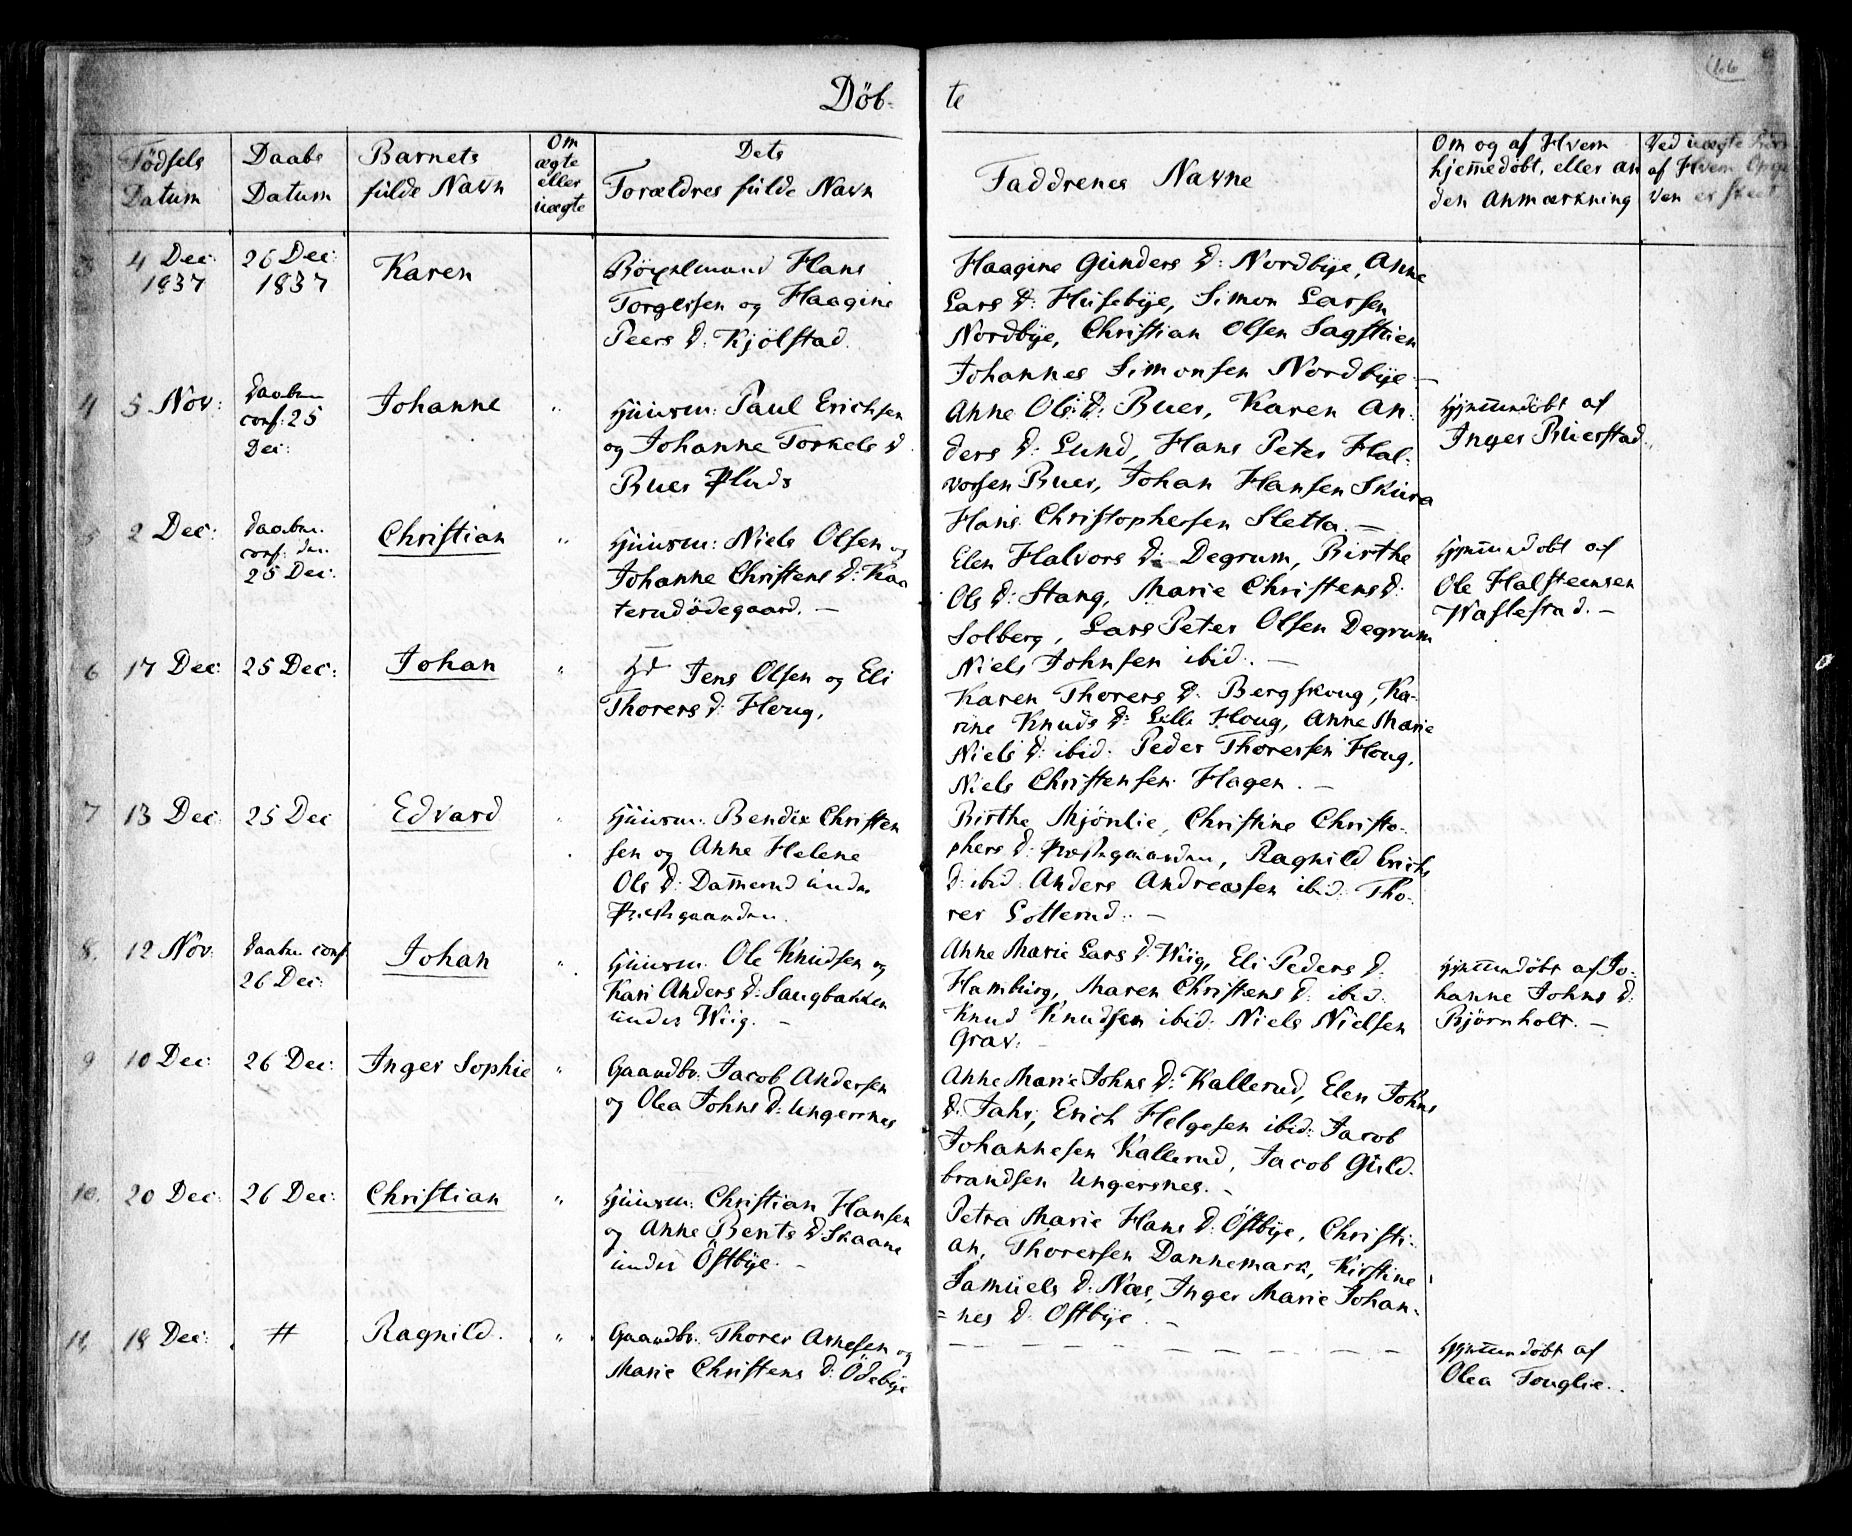 Döb- te
Födsels Datum
Daabs Datum
Barnets fulde Navn
Om ægte eller uægte
Dets Forældres fulde Navn
Faddrenes Navne
Om og af Hvem hjemmedöbt, eller an den Anmærkning
Ved uægte af Hvem ven er skeet
3 4 Dec: 1837
26 Dec: 1837
Karen
Böxelmand Hans
Torgersen og Haagine
Peers D: Kjölstad.
Haagine Gunders D: Nordbye, Anne
Lars D: Husebye, Simon Larsen
Nordbye, Christian Olsen Sagstuen
Johannes Simonsen Nordbye. —
4 5 Nov:
Daaben
conf: 25
Dec:
Johanne "
Huusm: Paul Erichsen
og Johanne Torkels D
Buer Plads
Anne Ols D: Buer, Karen An-
ders D: Lund, Hans Peter Hal-
vorsen Buer, Johan Hansen Skura
Hans Christophersen Sletta. —
Hjemmedöbt af
Inger Buerstad.
5 2 Dec:
Daaben
conf: den
25 Dec:
Christian "
Huusm: Niels Olsen og
Johanne Christens D: Kaa
terudödegaard. —
Elen Halvors D: Degrum, Birthe
Ols D: Stang, Marie Christens D:
Solberg, Lars Peter Olsen Degrum
Niels Johnsen ibid. —
Hjemmedöbt af
Ole Halsteensen
Waslestad. —
6 17 Dec: 25 Dec: Johan "
Hd Jens Olsen og Eli
Thorers D: Houg,
Karen Thorers D: Bergskoug, Ka-
rine Knuds D: Lille Houg, Anne Marie
Niels D: ibid. Peder Thorersen Houg,
Niels Christensen Hagen. —
7 13 Dec: 25 Dec Edvard "
Huusm: Bendix Christen
sen og Anne Helene
Ols D: Dammerud under
Præstegaarden.
Birthe Mjönlie, Christine Christo-
phers D: Præstegaarden, Ragnild Erichs
D: ibid: Anders Andreassen ibid: Tho-
rer Lotterud. —
8. 12 Nov:
Daaben conf
26 Dec:
Johan "
Huusm: Ole Knudsen og
Kari Anders D: Saugbakken
under Wiig. —
Anne Marie Lars D: Wiig, Eli Peders D:
Hamburg, Maren Christens D: ibid.
Knud Knudsen ibid: Niels Nielsen
Grav. —
Hjemmedöbt af Jo-
hanne Johns D:
Björnholt. —
9 10 Dec: 26 Dec: Inger Sophie "
Gaardbr: Jacob Andersen
og Olea Johns D: Ungersnes
Anne Marie Johns D: Kallerud, Elen Johns
D: Jahr, Erich Helgesen ibid: Jacob
Johannesen Kallerud, Jacob Guld-
brandsen Ungersnes. -
10. 20 Dec: 26 Dec: Christian "
Huusm: Christian Hansen
og Anne Bents D: Skaane
under Östbye. -
Petra Marie Hans D: Östbye, Christi-
an, Thorersen Dannemark, Kirstine
Samuels D: Næs, Inger Marie Johan-
= nes D: Ostbye. -
11 18 Dec: # Ragnild. "
Gaardbr: Thorer Arnesen og
Marie Christens D: Ödebye
— — — — — — — — —
Hjemmedöbt af
Olea Touglie.